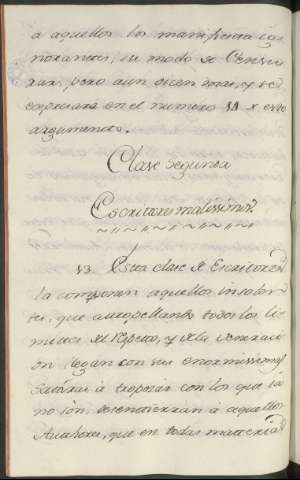 a aquellos los manifiesta ig-
norantes, su modo de Censu-
rar, pero aun dicen mas, y se
expresará en el numero 51 de este
argumento.
Clase Segunda
Escritores malissimos
53. Esta clase de Escritores
la componen aquellos insolen-
tes, que atropellando todos los li-
mites del respeto, y de la veneraci-
on llegan con sus enormissimas
a tropezar con los que ya
no son; desentierran a aquellos
Authores, que en todas materias